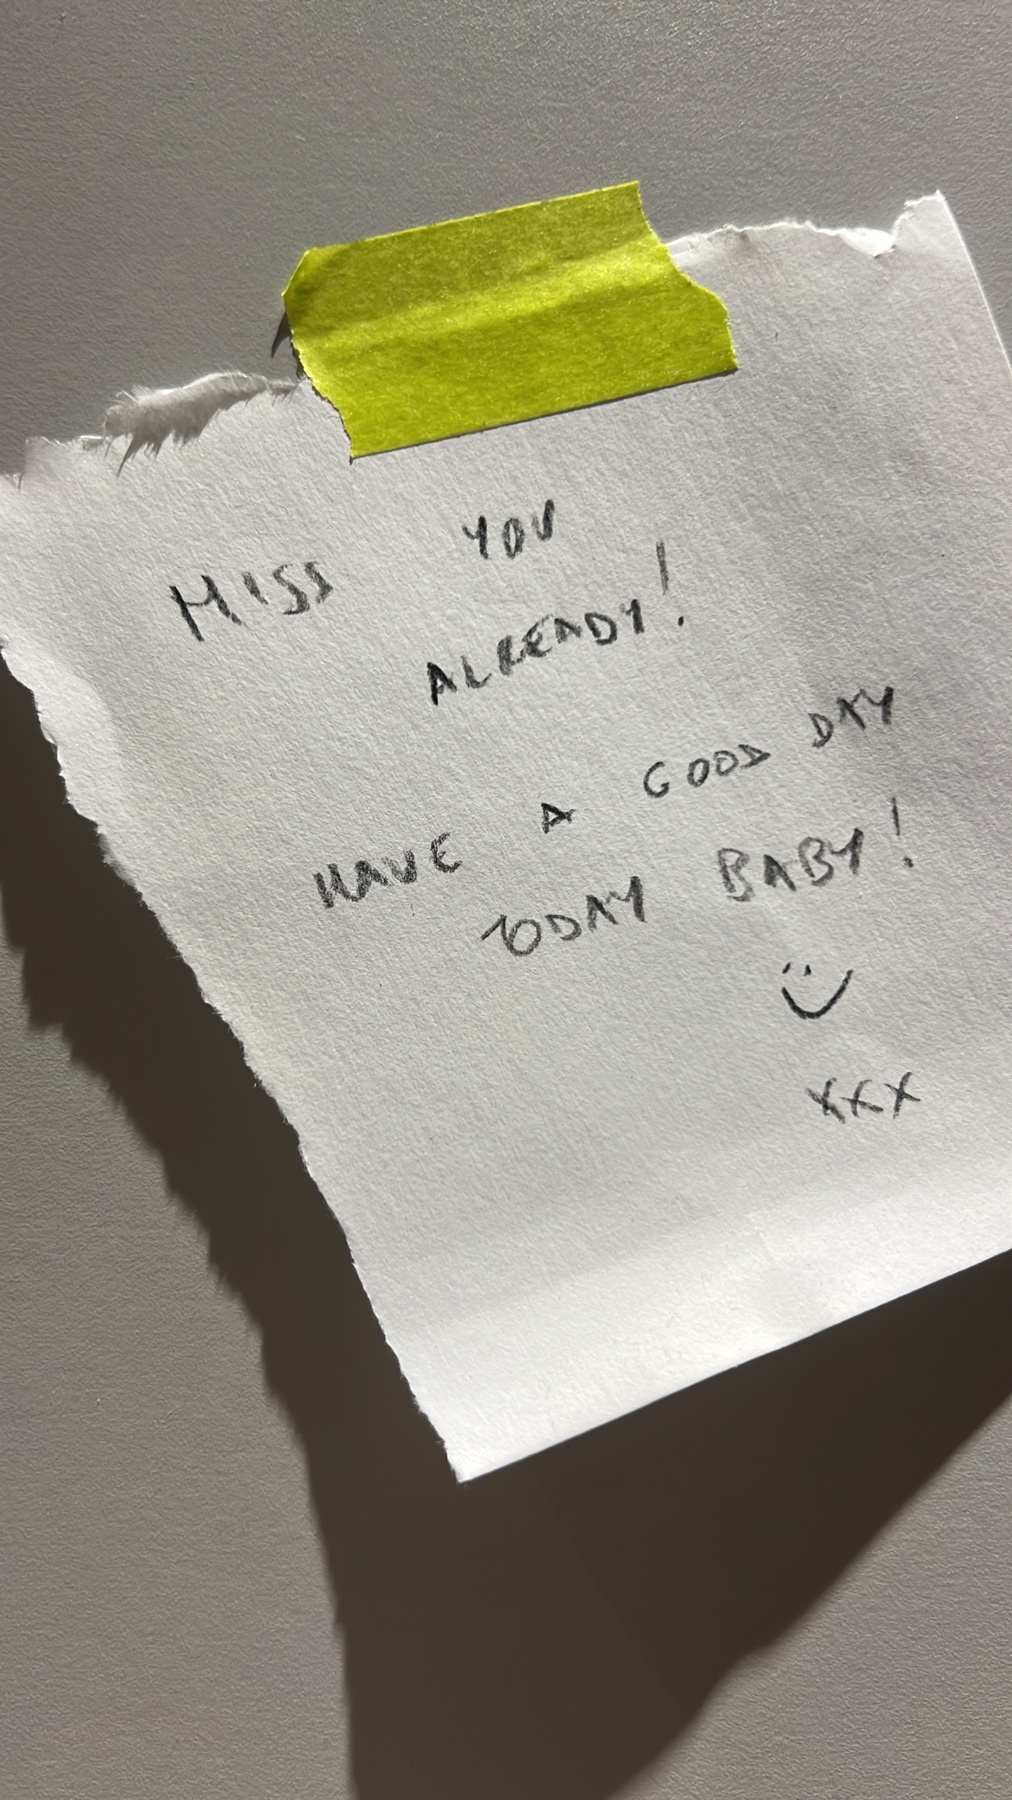 MISS YOU
ALREADY!
HAVE A GOOD DAY
TODAY BABY!
XXX